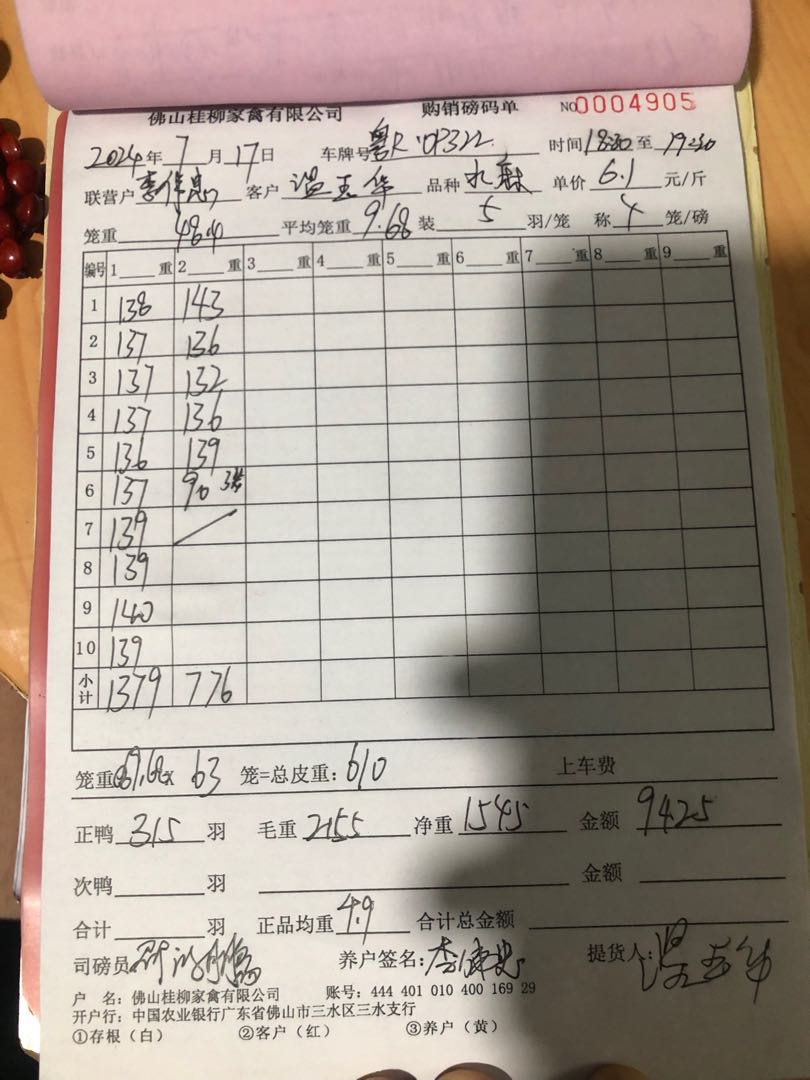 佛山桂柳家禽有限公司 购销磅码单 NO 0004905
2024年 7 月 17 日 车牌号 粤R·0P322 时间 18:30 至 19:30
联营户 客户 温五华 品种 单价 6.1 元/斤
笼重 48.4 平均笼重 9.68 装 5 羽/笼 称 4 笼/磅
编号 1 重 2 重 3 重 4 重 5 重 6 重 7 重 8 重 9 重
1 138 143
2 137 136
3 137 132
4 137 136
5 136 139
6 137 90 3笼
7 139
8 139
9 140
10 139
小计 1379 776
笼重 9.68x 63 笼=总皮重：610 上车费
正鸭 315 羽 毛重 2155 净重 1545 金额 9425
次鸭 羽 金额
合计 羽 正品均重 4.9 合计总金额
司磅员 养户签名： 提货人： 温五华
户 名：佛山桂柳家禽有限公司 账号：444 401 010 400 169 29
开户行：中国农业银行广东省佛山市三水区三水支行
①存根（白） ②客户（红） ③养户（黄）